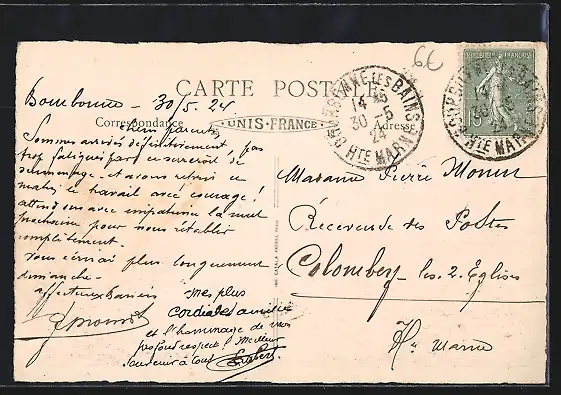 6€
CARTE POSTALE
Correspondance
UNIS-FRANCE
Adresse
BOURBONNE-LES-BAINS
14 45
30 -5
24
HTE MARNE
POSTES FRANÇAISE
15
Bourbonne - 30/5. 24
chers parents
Sommes arrivés définitivement, pas
trop fatigués par ce surcroît de
. et avons repris ce
matin le travail avec courage!
attendons avec impatience la
prochaine pour nous rétablir
complètement.
Vous écrirai plus longuement
dimanche -
affectueux baisers
mes plus
cordiales amitiés
et l'hommage de mon
profond respect. Meilleur
souvenir à tous
Madame Pierre
Receveuse des Postes
Colombey-les-2-Églises
Hte Marne